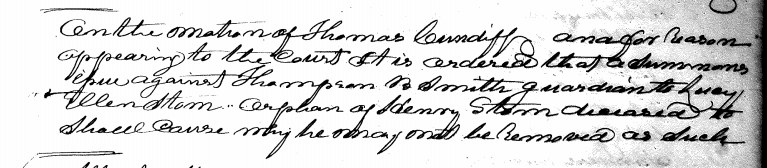 On the motion of Thomas Cundiff, and for reason
appearing to the Court it is ordered that a summons
issue against Thompson B Smith guardian to Lucy
Ellen Stom orphan of Henry Stom deceased to
Shall Cause why he may not be Removed as Such